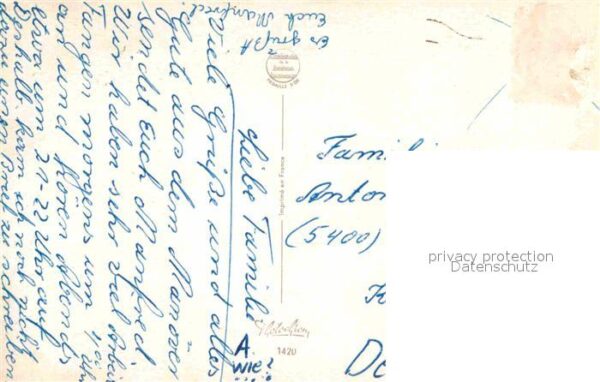 Liebe Familie
Viele Grüße und alles
Gute aus dem Manöver
sendet Euch Manfred
Wir haben sehr viel Arbei
Tangen morgens um 4.00 Uhr
an und hören Abends
etwa um 21-22 Uhr auf
Deshalb kam ich noch nicht
dazu einen Brief zu schreiben
Es grüßt
Euch Manfred
Imprimé en France
1420
A.
wie?
Famili
Anton
(5400)
privacy protection
Datenschutz